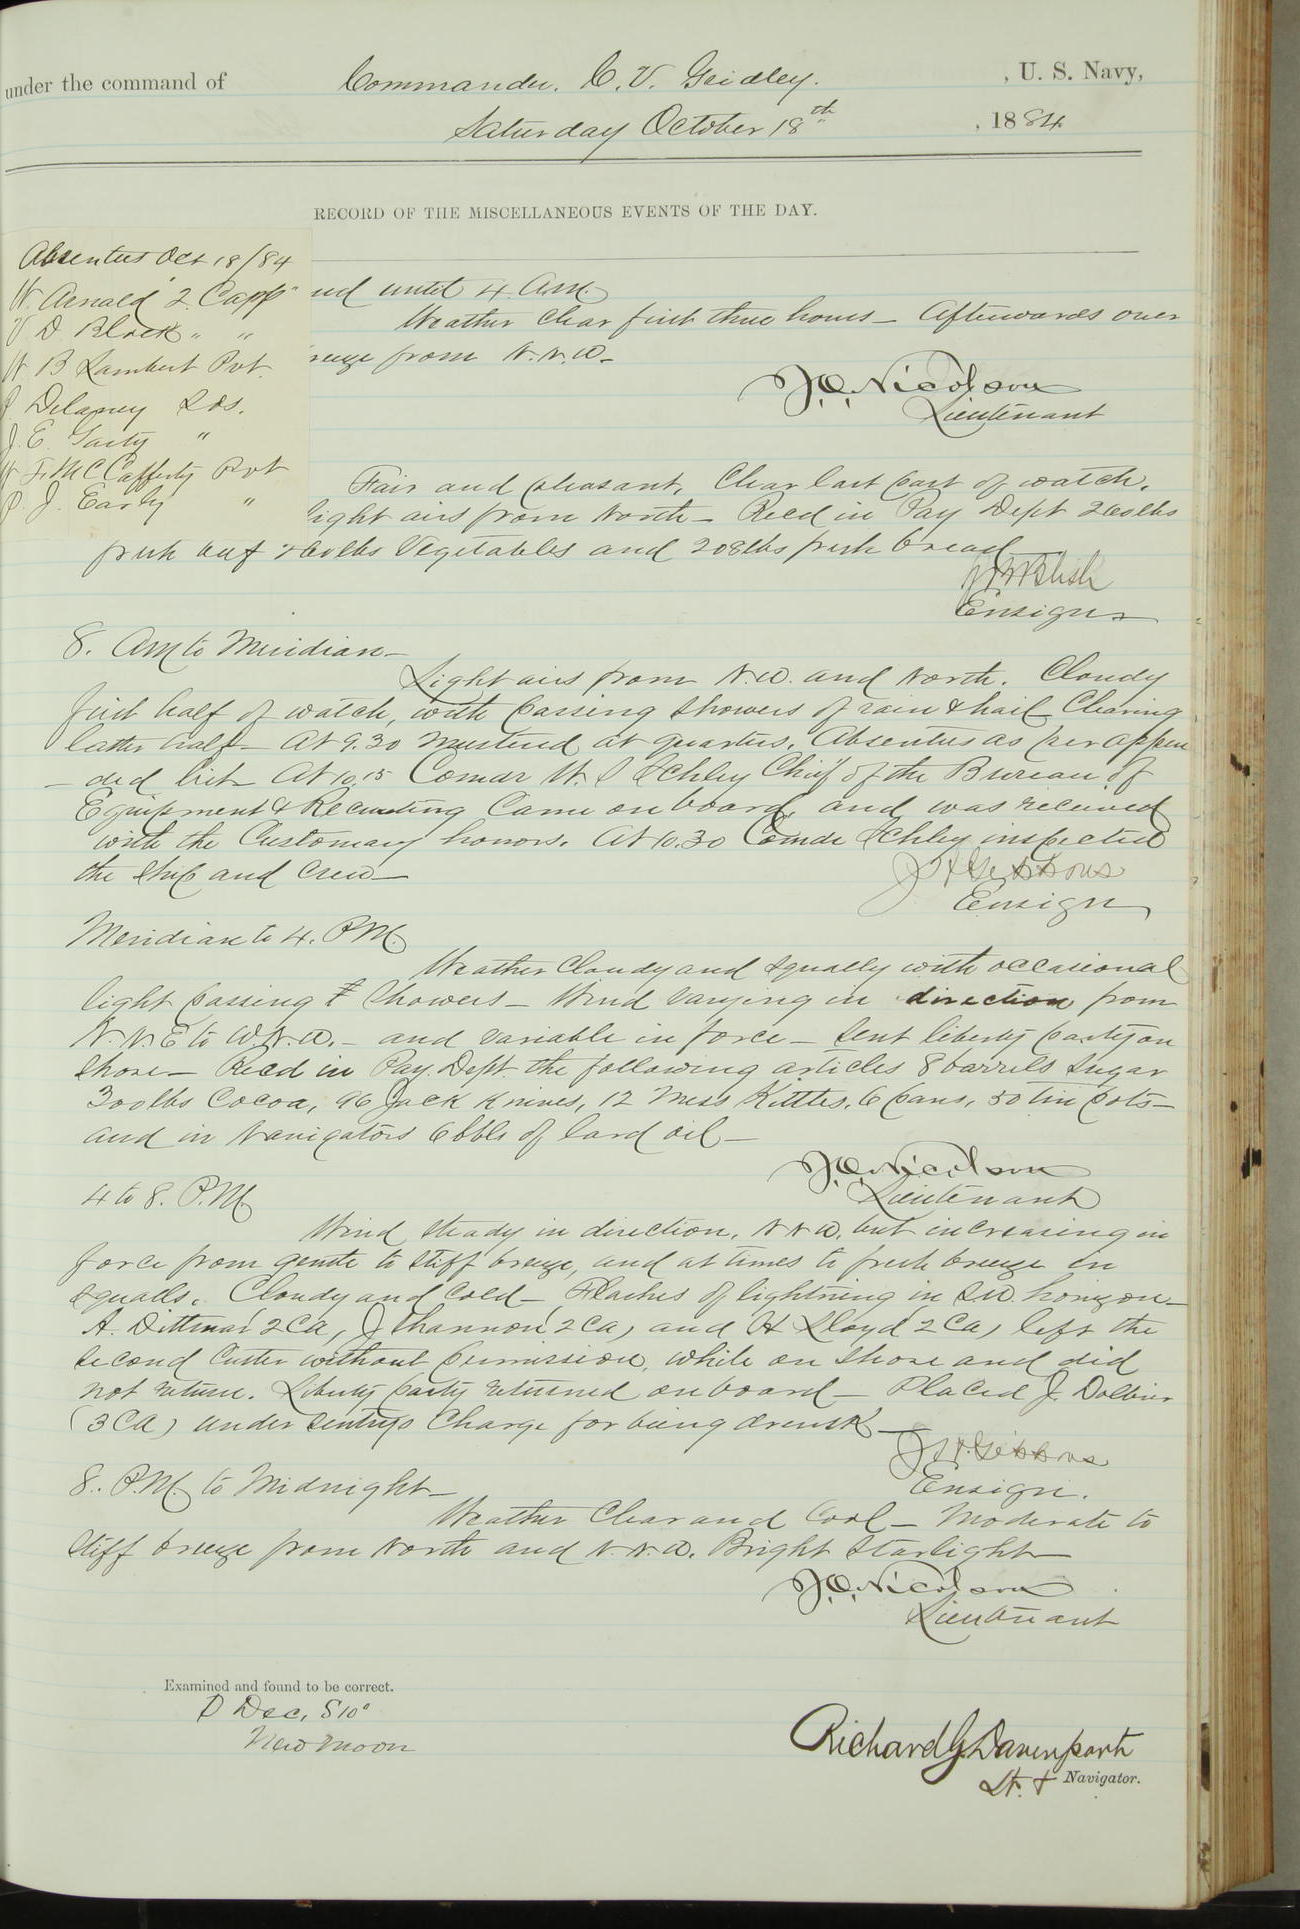 under the command of Commander. C. V. Gridley. , U. S. Navy,
Saturday October 18th , 1884
RECORD OF THE MISCELLANEOUS EVENTS OF THE DAY.
Absentees Oct 18/84
W. Arnald 2. Capp"
V D. Black " "
W B Lambert Pvt.
J Delaney Lds.
J. E. Garty "
W F. McCafferty Pvt
P. J. Early "
until 4 A.M.
Weather clear first three hours - Afterwards over
from N.N.W.
J.O. Nicolson
Lieutenant
Fair and pleasant, Clear last part of watch.
light airs from North - Recd in Pay Dept 260 lbs
fresh beef 260 lbs Vegetables and 208 lbs fresh bread
Ensign
8. AM to Meridian -
Light airs from N.W. and North. Cloudy
first half of watch, with passing showers of rain & hail Clearing
latter half - At 9.30 mustered at quarters, Absentees as per appen
- ded list. At 10.15 Comdr W. S Schley Chief of the Bureau of
Equipment & Recruiting Came on board, and was received
with the Customary honors. At 10.30 Comdr Schley inspected
the ship and crew -
J H Gibbons
Ensign
Meridian to 4. P.M.
Weather Cloudy and squally with occasional
light passing showers - Wind varying in direction from
N.N.E to W.N.W. - and variable in force - Sent liberty party on
shore - Recd in Pay. Dept. the following articles 8 barrels sugar
300 lbs Cocoa, 96 Jack Knives, 12 Mess Kittles, 6 pans, 50 tin pots -
and in Navigators 6 bbls of lard oil -
J.O. Nicolson
Lieutenant
4 to 8. P.M.
Wind steady in direction, N N W, but increasing in
force from gentle to stiff breeze, and at times to fresh breeze in
squalls. Cloudy and Cold - Flashes of lightning in S.W. horizon -
A. Dittmar (2Ca), J Shannon (2Ca) and H Lloyd (2Ca) left the
second Cutter without permission, while on shore and did
not return. Liberty party returned on board - Placed J. Dolbier
(3Ca) under sentrys Charge for being drunk -
J. H. Gibbons
Ensign.
8. P.M. to Midnight -
Weather Clear and Cool - Moderate to
stiff breeze from North and N.N.W. Bright Starlight -
J.O. Nicolson
Lieutenant
Examined and found to be correct.
D Dec, S 10°
New Moon
Richard G. Davenport
Lt. & Navigator.